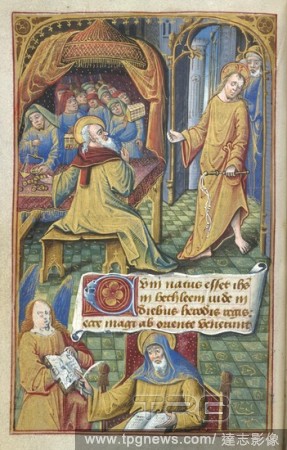 Cum natus esset ihs
in bethleem iude in
diebus herodis regis
ecce magi ab oriente venerunt
TPG
www.tpgnews.com/ 達志影像